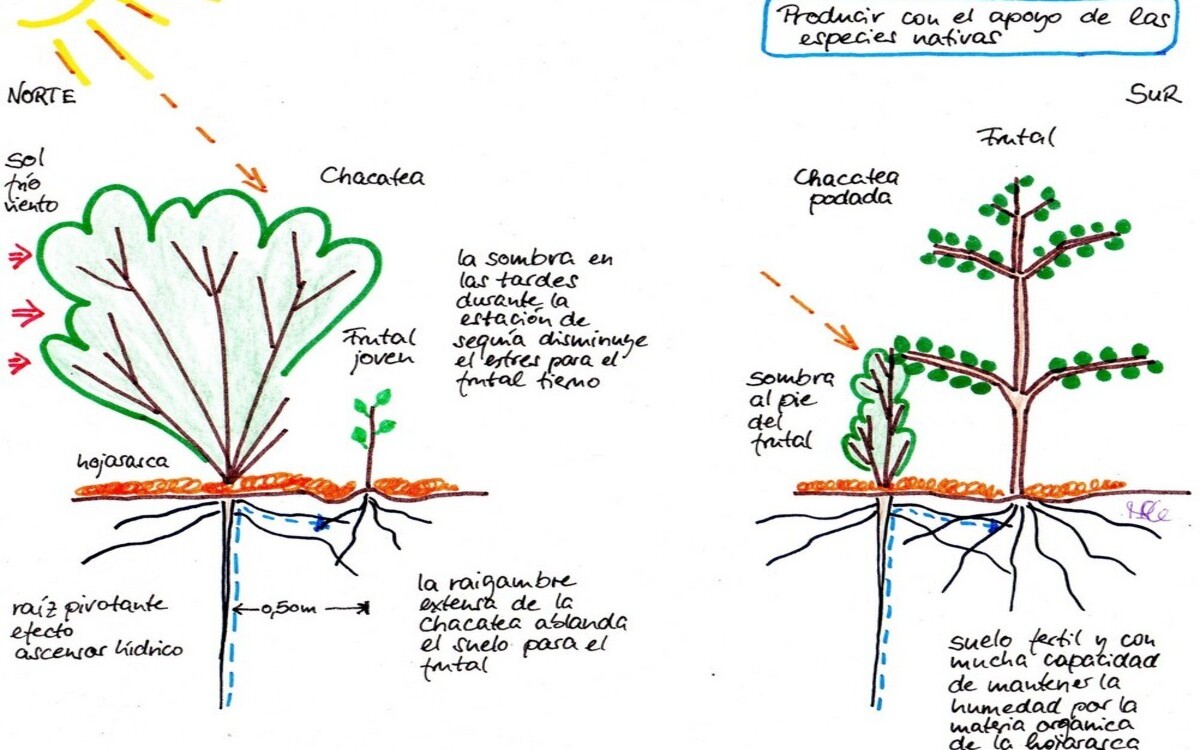 Producir con el apoyo de las
especies nativas
NORTE
SUR
sol
frío
viento
Chacatea
la sombra en
las tardes
durante la
estación de
sequía disminuye
el estres para el
frutal tierno
Frutal
joven
hojarasca
raíz pivotante
efecto
ascensor hídrico
0,50m
la raigambre
extensa de la
chacatea ablanda
el suelo para el
frutal
Frutal
Chacatea
podada
sombra
al pie
del
frutal
suelo fertil y con
mucha capacidad
de mantener la
humedad por la
materia orgánica
de la hojarasca